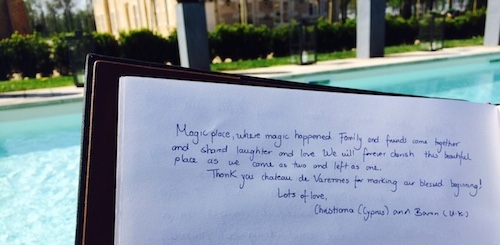 Magic place, where magic happened. Family and friends came together
and shared laughter and love. We will forever cherish this beautiful
place as we came as two and left as one.
Thank you chateau de Varennes for marking our blessed beginning!
Lots of love,
Christiana (Cyprus) and (U.K)